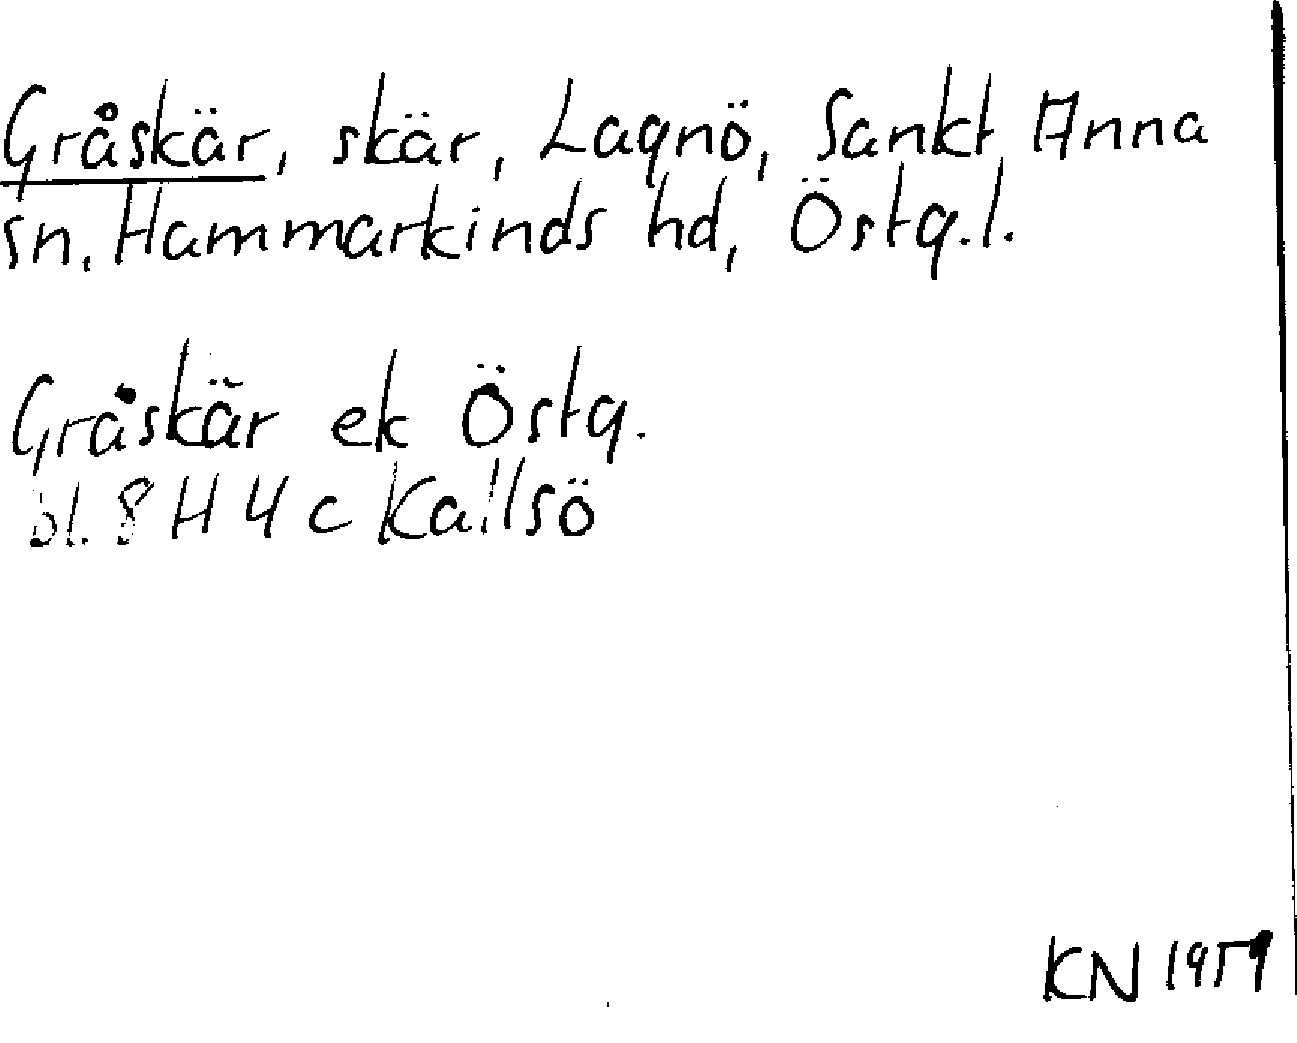 Gråskär, skär, Lagnö, Sankt Anna
sn, Hammarkinds hd, Östg.l.
Gråskär ek Östg.
bl. 8 H 4 c Kallsö
KN 1959